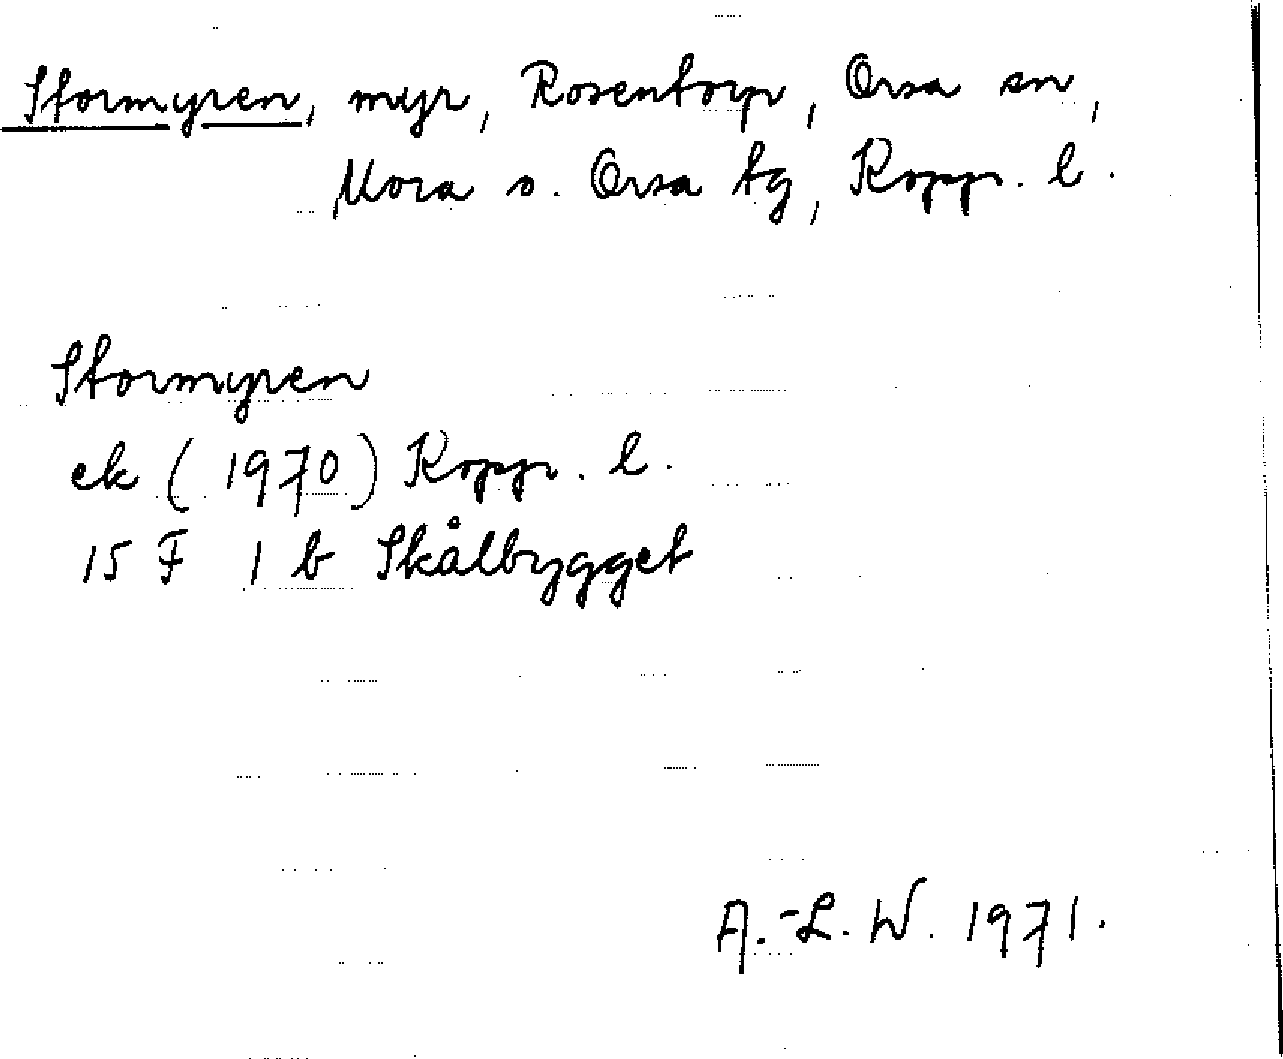 Stormyren, myr, Rosentorp, Orsa sn,
Mora o. Orsa tg, Kopp. l.
Stormyren
ek (1970) Kopp. l.
15 F 1 b Skålbygget
A.-L. W. 1971.